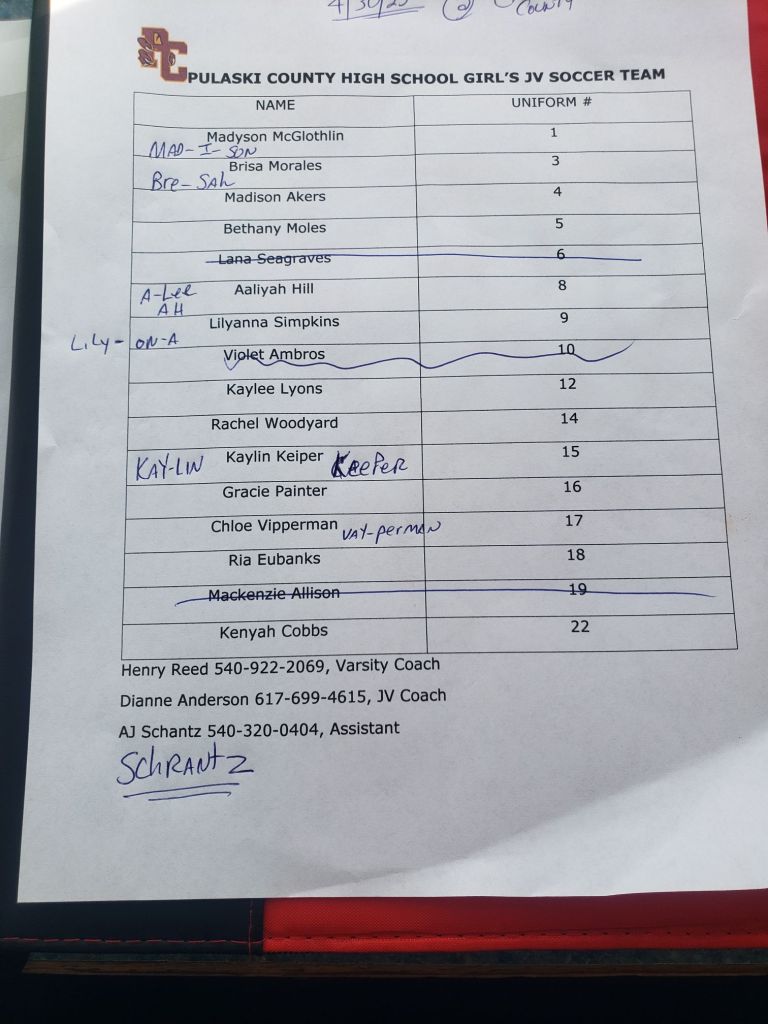 4/30/25 @
COUNTY
PC
PULASKI COUNTY HIGH SCHOOL GIRL'S JV SOCCER TEAM
NAME UNIFORM #
Madyson McGlothlin 1
MAD-I-SON
Brisa Morales 3
Bre-SAh
Madison Akers 4
Bethany Moles 5
Lana Seagraves 6
Aaliyah Hill 8
A-Lee
AH
Lilyanna Simpkins 9
LiLy-ON-A
Violet Ambros 10
Kaylee Lyons 12
Rachel Woodyard 14
Kaylin Keiper 15
KAY-LIN KeePeR
Gracie Painter 16
Chloe Vipperman 17
VAY-perMAN
Ria Eubanks 18
Mackenzie Allison 19
Kenyah Cobbs 22
Henry Reed 540-922-2069, Varsity Coach
Dianne Anderson 617-699-4615, JV Coach
AJ Schantz 540-320-0404, Assistant
SchRANtz